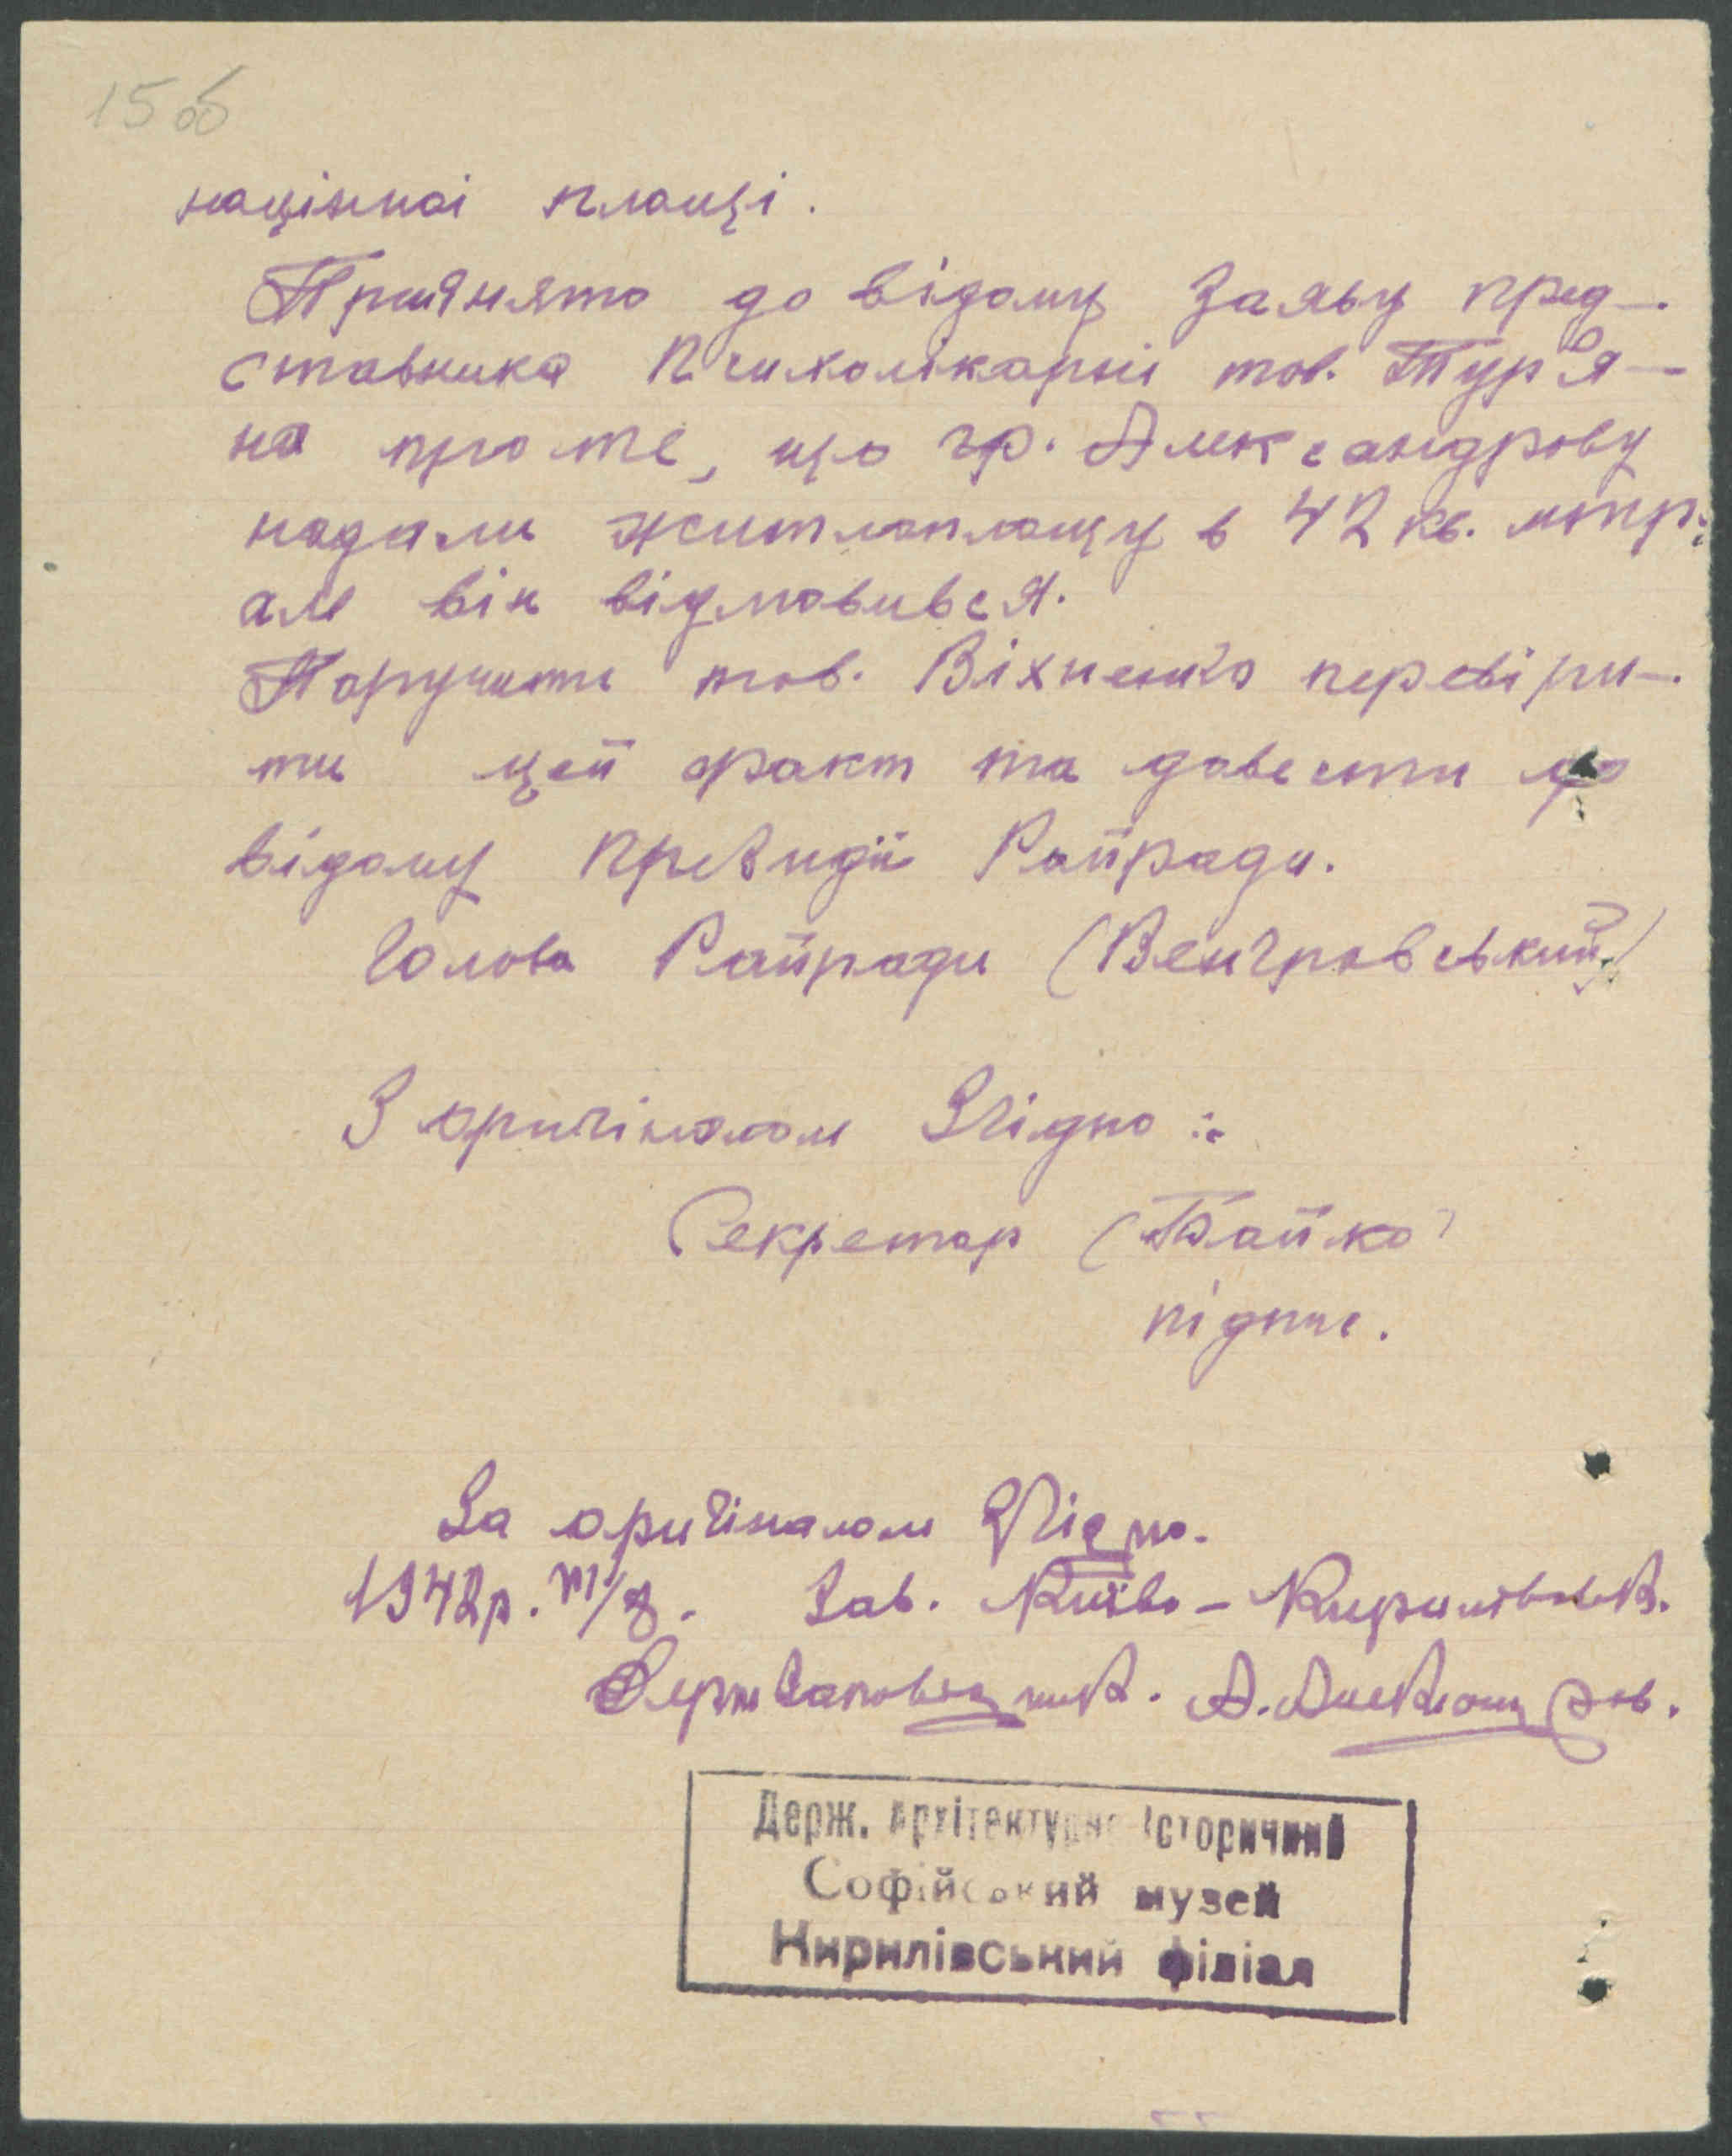 15 об
націнної площі.
Прийнято до відому заяву пред-
ставника Психолікарні тов. Тур'я-
на про те, що гр. Александрову
надали житлоплощу в 42 кв. мтр.
але він відмовився.
Поручити тов. Віхненко перевіри-
ти цей факт та довести до
відому Президії Райради.
Голова Райради (Венгровський)
З оригіналом Згідно:
Секретар (Байко)
підпис.
За оригіналом Згідно.
1942р. Зав. Київо-Кирилівськ.
Держзаповідник. А. Александров.
Держ. Архітектурно Історичний
Софійський музей
Кирилівський філіал